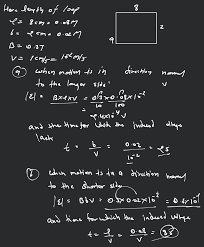 Here length of loop
8
l = 8cm = 0.08m
b = 2cm = 0.02m
2
B = 0.3T
V = 1cm/s = 10⁻²m/s
9
(a) when motion is in direction normal
to the longer side
V
|ε| =
= 2.4×10⁻⁴ V
and the time for which the induced voltage
lasts
t = b/V = 0.02/10⁻² = 2s
(b) when motion is in a direction normal
to the shorter side
|ε| = BbV = 0.3×0.02×10⁻² = 0.6×10⁻⁴
and time for which the induced voltage
t = l/V = 0.08/10⁻² = 8s